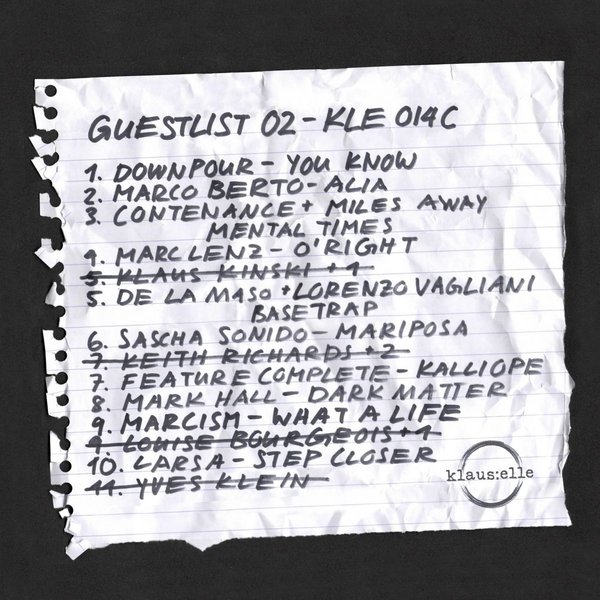 GUESTLIST 02 - KLE 014C
1. DOWNPOUR - YOU KNOW
2. MARCO BERTO - ALIA
3. CONTENANCE + MILES AWAY
MENTAL TIMES
4. MARC LENZ - O'RIGHT
5. KLAUS KINSKI + 1
5. DE LA MASO + LORENZO VAGLIANI
BASETRAP
6. SASCHA SONIDO - MARIPOSA
7. KEITH RICHARDS + 2
7. FEATURE COMPLETE - KALLIOPE
8. MARK HALL - DARK MATTER
9. MARCISM - WHAT A LIFE
9. LOUISE BOURGEOIS + 1
10. LARSA - STEP CLOSER
11. YVES KLEIN
klaus:elle